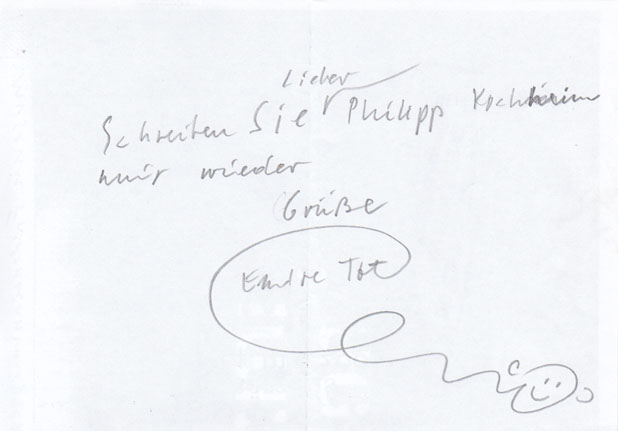 Lieber
Schreiben Sie Philipp Kochheim
mir wieder
Grüße
Endre Tot